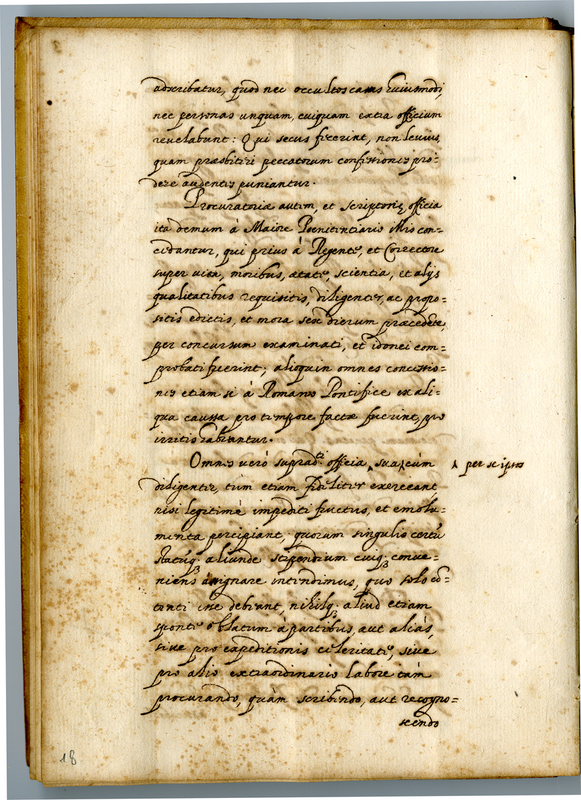 adscribatur, quod nec occultos casus huiusmodi,
nec personas unquam, cuiquam extra officium
revelabunt: Qui secus fecerint, non levius,
quam præsbiteri peccatorum confessiones pro=
dere audentes puniantur.
Procuratoriæ autem, et scriptoriæ officia
ita demum à Maiore Pœnitentiario concé=
cedantur, qui prius à Regente, et Correctore
super vita, moribus, ætate, scientia, et alijs
qualitatibus requisitis, diligenter, ac propo=
sitis edictis, et mora sex dierum præcedente,
per concursum examinati, et idonei com=
probati fuerint; alioquin omnes concessio=
nes etiam si à Romano Pontifice ex ali=
qua caussa pro tempore factæ fuerint, pro
irritis habeantur.
Omnes verò suprad. officia ^ sua, cùm ^ per se ipsos
diligenter, tum etiam fideliter exerceant
nisi legitime impediti fuerint, et emolu=
menta percipiant, quorum singulis certū
statūq; aliunde stipendium cuiq; conve=
niens assignare intendimus, quo solo cō=
tenti esse debeant, nihilq; aliud etiam
sponte oblatum à partibus, aut aliàs,
sive pro expeditionis celeritate, sive
pro alio extraordinario labore tàm
procurando, quàm scribendo, aut recogno=
scendo
18